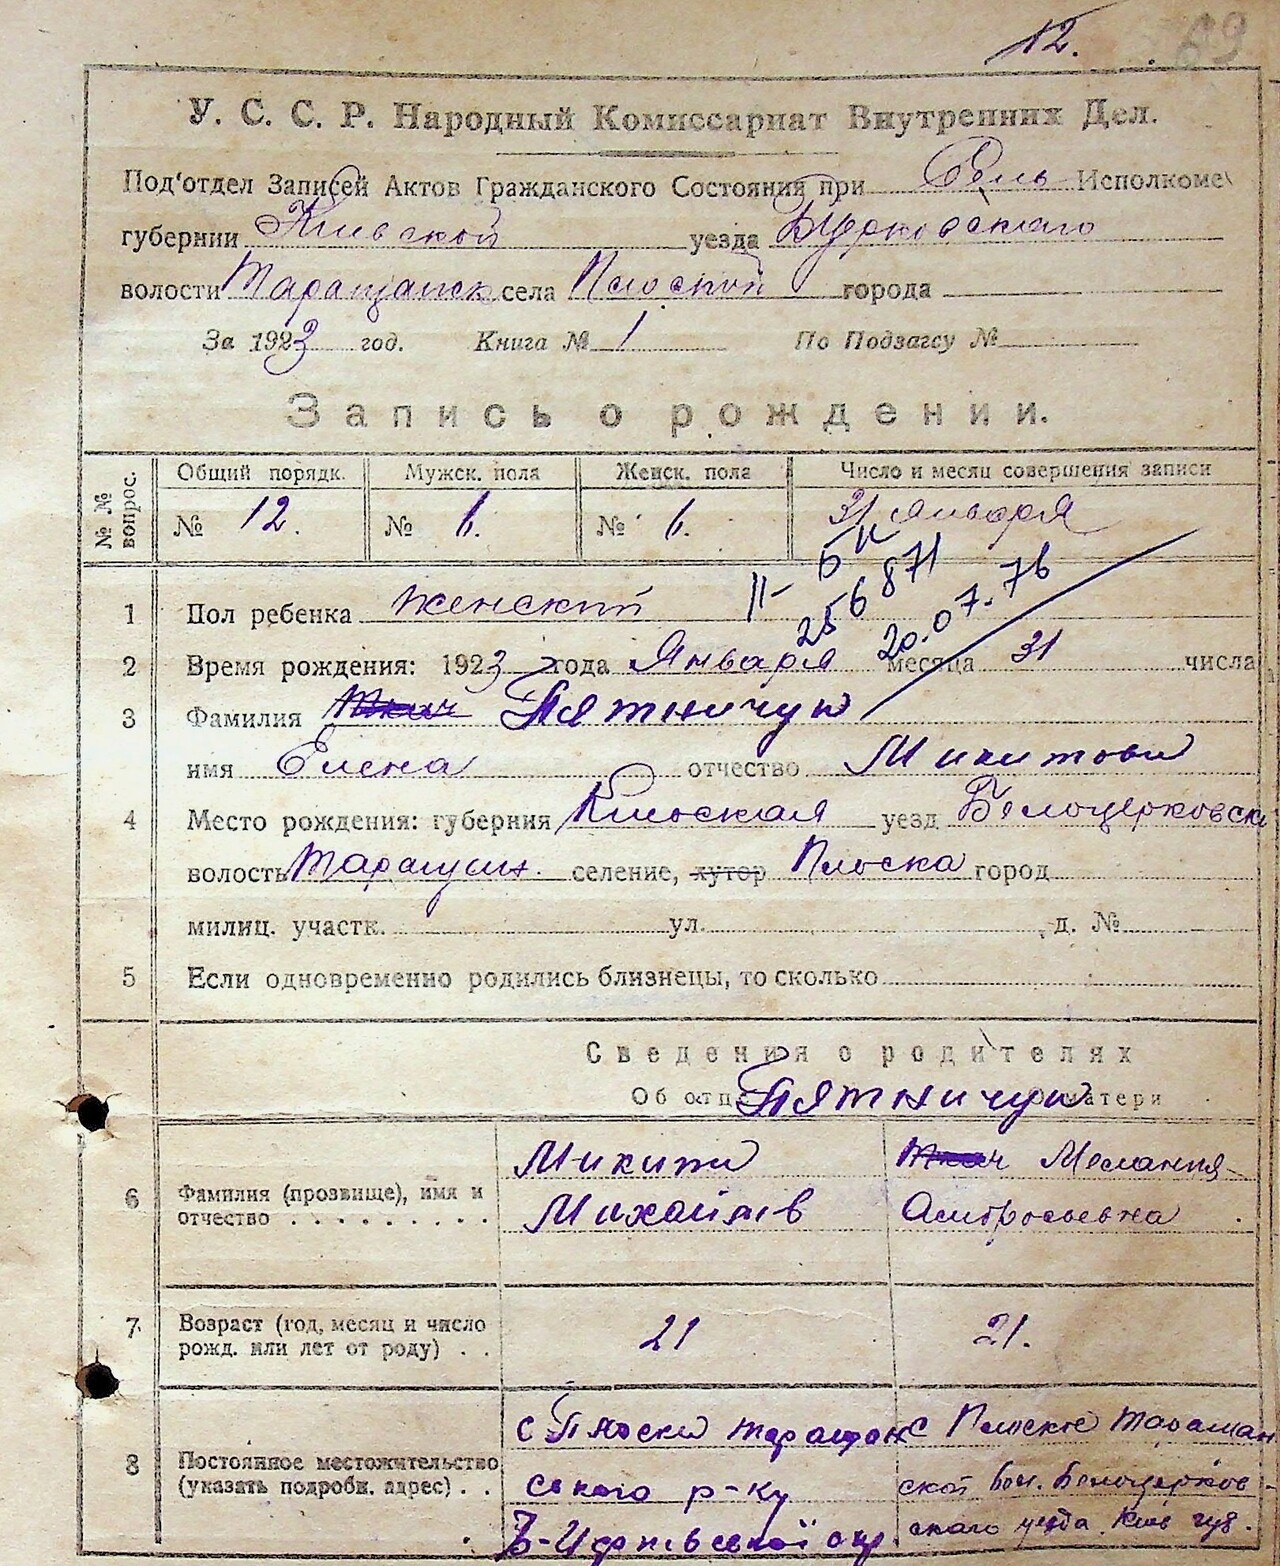 12. 69
У. С. С. Р. Народный Комиссариат Внутренних Дел.
Под'отдел Записей Актов Гражданского Состояния при Сель Исполкоме
губернии Киевской уезда Б Церковского
волости Таращанск села Плоской города
За 1923 год. Книга № 1 По Подзагсу №
Запись о рождении.
№№ вопрос. Общий порядк. Мужск. пола Женск. пола Число и месяц совершения записи
№ 12. № 6. № 6. 31 января
II-БК
256871
20.07.76
1 Пол ребенка Женский
2 Время рождения: 1923 года Января месяца 31 числа
3 Фамилия Ткач Пятничук
имя Елена отчество Микитовн
4 Место рождения: губерния Киевская уезд Белоцерковск
волость Таращан. селение, хутор Плоска город
милиц. участк. ул. д. №
5 Если одновременно родились близнецы, то сколько
Сведения о родителях
Об отце Пятничук О матери
6 Фамилия (прозвище), имя и отчество
Микита
Михайлів
Ткач Мелания
Амбросьевна
7 Возраст (год, месяц и число рожд. или лет от роду) 21 21.
8 Постоянное местожительство (указать подробн. адрес)
с Плоски Таращан
ского р-ку
Б-Церківської окр
с Плоске Таращан
ской вол. Белоцерков
ского уезда Киев губ.